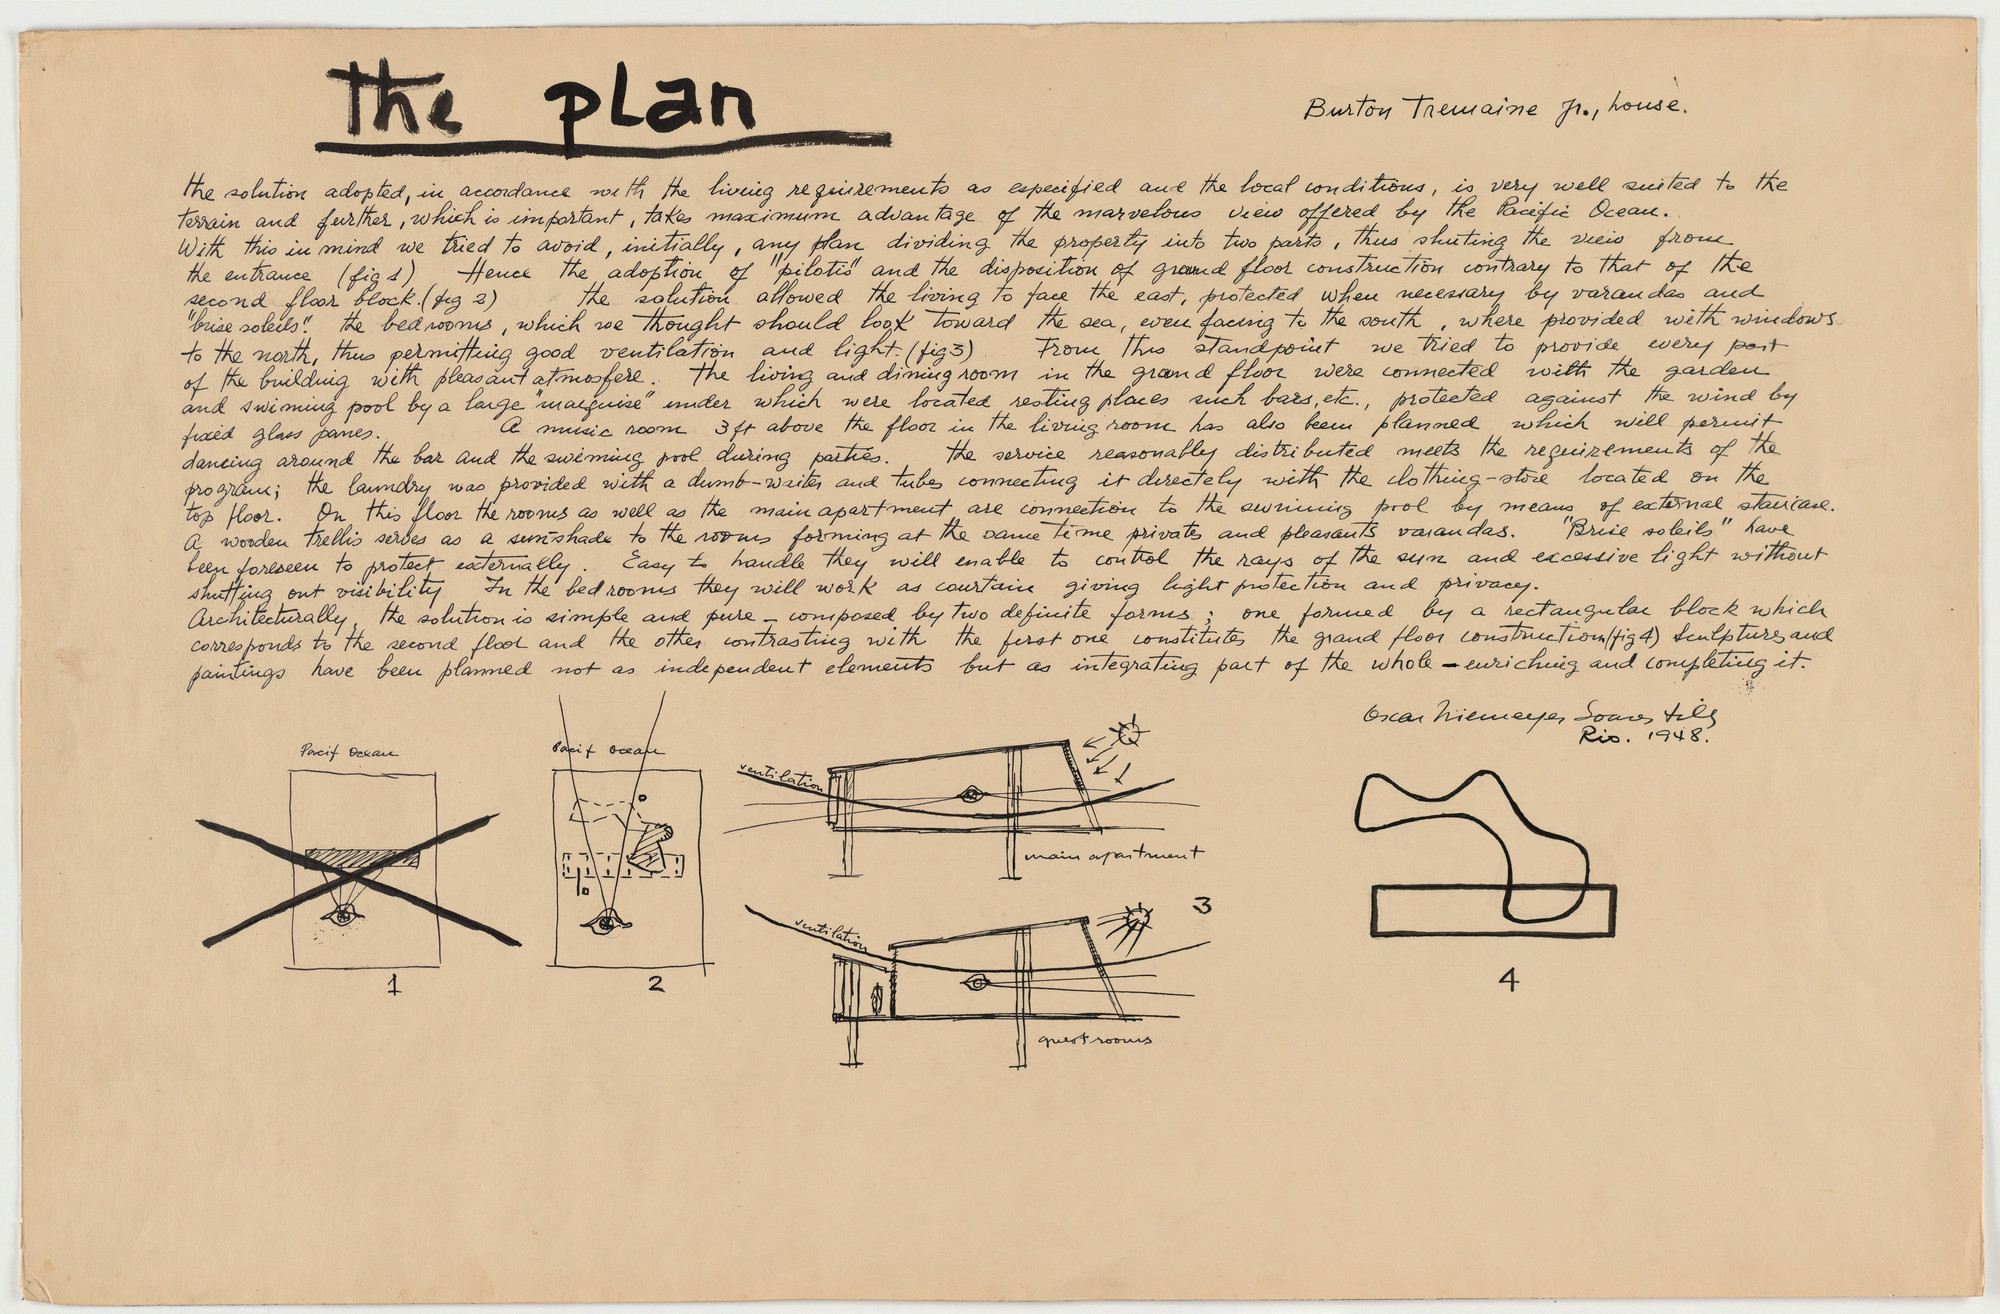 the plan
Burton Tremaine Jr., house.
the solution adopted, in accordance with the living requirements as especified and the local conditions, is very well suited to the
terrain and further, which is important, takes maximum advantage of the marvelous view offered by the Pacific Ocean.
With this in mind we tried to avoid, initially, any plan dividing the property into two parts, thus shuting the view from
the entrance (fig 1) Hence the adoption of "pilotis" and the disposition of ground floor construction contrary to that of the
second floor block. (fig 2) the solution allowed the living to face the east, protected when necessary by varandas and
"brise soleils". the bedrooms, which we thought should look toward the sea, even facing to the south, where provided with windows
to the north, thus permitting good ventilation and light. (fig 3) From this standpoint we tried to provide every part
of the building with pleasant atmosfere. the living and dining room in the ground floor were connected with the garden
and swiming pool by a large "marquise" under which were located resting places such bars, etc., protected against the wind by
fixed glass panes. A music room 3ft above the floor in the living room has also been planned which will permit
dancing around the bar and the swiming pool during parties. the service reasonably distributed meets the requirements of the
program; the laundry was provided with a dumb-waiter and tubes connecting it directely with the clothing-store located on the
top floor. On this floor the rooms as well as the main apartment are connection to the swimming pool by means of external staircase.
A wooden trellis serves as a sun-shade to the rooms forming at the same time privates and pleasants varandas. "Brise soleils" have
been foreseen to protect externally. Easy to handle they will enable to control the rays of the sun and excessive light without
shutting out visibility In the bedrooms they will work as courtain giving light protection and privacy.
Architecturally, the solution is simple and pure - composed by two definite forms; one formed by a rectangular block which
corresponds to the second floor and the other contrasting with the first one constitutes the grand floor construction (fig 4) Sculptures and
paintings have been planned not as independent elements but as integrating part of the whole - enriching and completing it.
Oscar Niemeyer Soares Filho
Rio. 1948.
Pacif Ocean
1
Pacif Ocean
2
ventilation
main apartment
3
ventilation
guest rooms
4